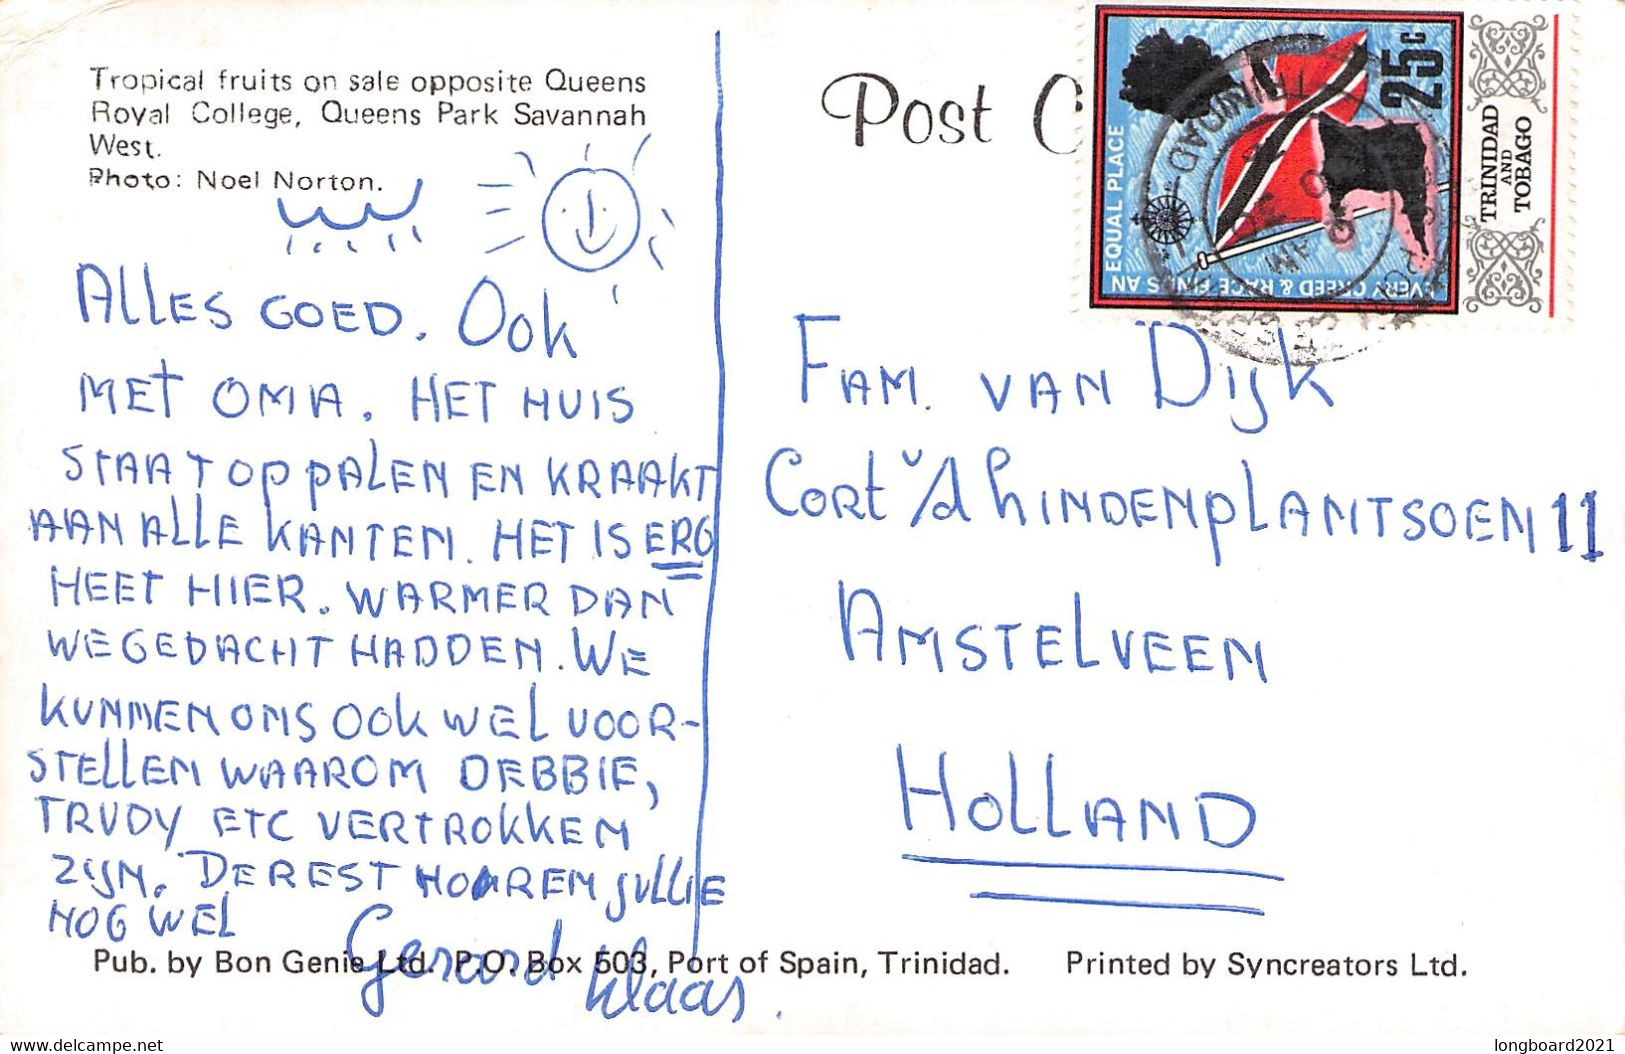 Tropical fruits on sale opposite Queens
Royal College, Queens Park Savannah
West.
Photo: Noel Norton.
ALLES GOED. OOK
MET OMA. HET HUIS
STAAT OP PALEN EN KRAAKT
AAN ALLE KANTEN. HET IS ERG
HEET HIER. WARMER DAN
WE GEDACHT HADDEN. WE
KUNNEN ONS OOK WEL VOOR-
STELLEN WAAROM DEBBIE,
TRUDY ETC VERTROKKEN
ZIJN. DE REST HOREN JULLIE
NOG WEL
Gerard
Klaas.
Post C
25c
TRINIDAD
AND
TOBAGO
EVERY CREED & RACE FINDS AN EQUAL PLACE
TRINIDAD
AM
FAM. VAN DIJK
CORT v/d LINDENPLANTSOEN 11
AMSTELVEEN
HOLLAND
Pub. by Bon Genie Ltd. P.O. Box 503, Port of Spain, Trinidad. Printed by Syncreators Ltd.
www.delcampe.net
longboard2021